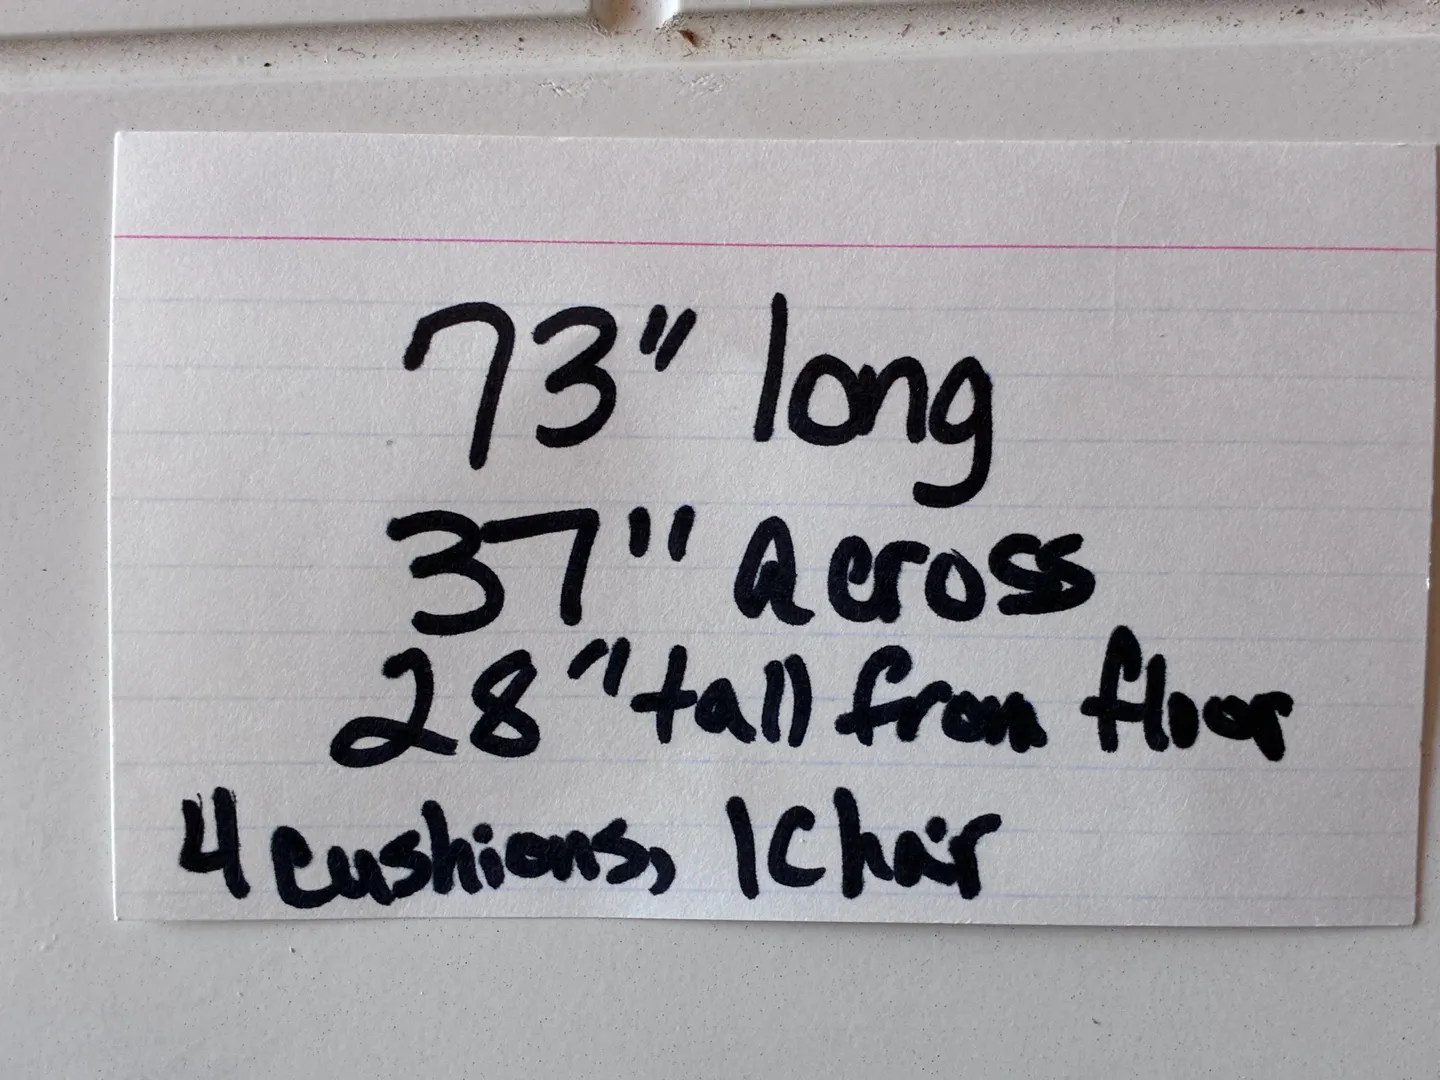 73" long
37" across
28" tall from floor
4 cushions, 1 Chair